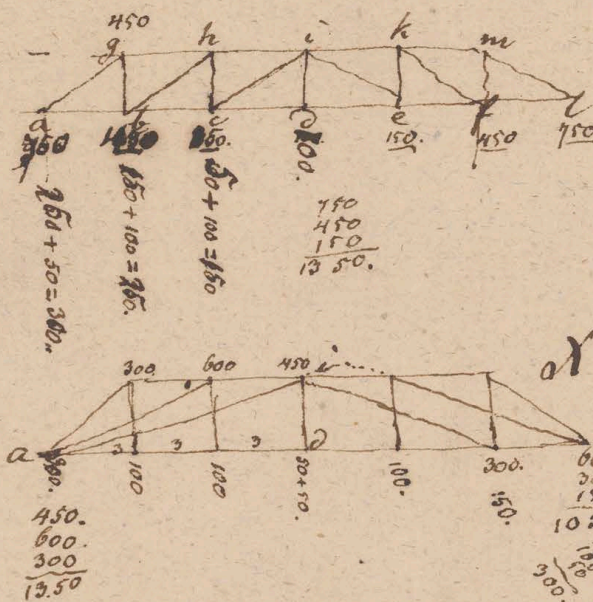 450
g h i k m
a b c d e f l
750 150. 100. 150. 450 750
250+50=300.
150+100=250.
50+100=150
750
450
150
1350.
300. 600 450 i
a 3 3 3 d
100 100 50+50. 100. 300. 150.
450.
600.
300
1350
300.